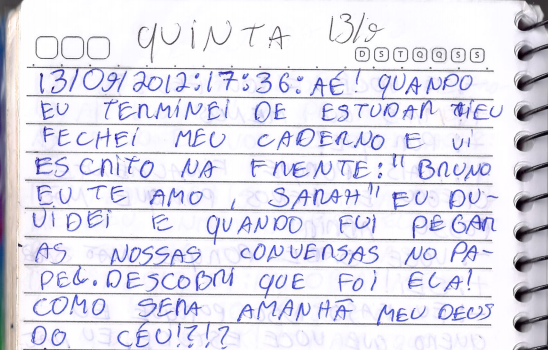 QUINTA 13/9
D S T Q Q S S
13/09/2012:17:36: AÉ! QUANDO
EU TERMINEI DE ESTUDAR EU
FECHEI MEU CADERNO E VI
ESCRITO NA FRENTE: "BRUNO
EU TE AMO, SARAH" EU DU-
VIDEI E QUANDO FUI PEGAR
AS NOSSAS CONVERSAS NO PA-
PEL. DESCOBRI QUE FOI ELA!
COMO SERA AMANHÃ MEU DEUS
DO CÉU!?!?